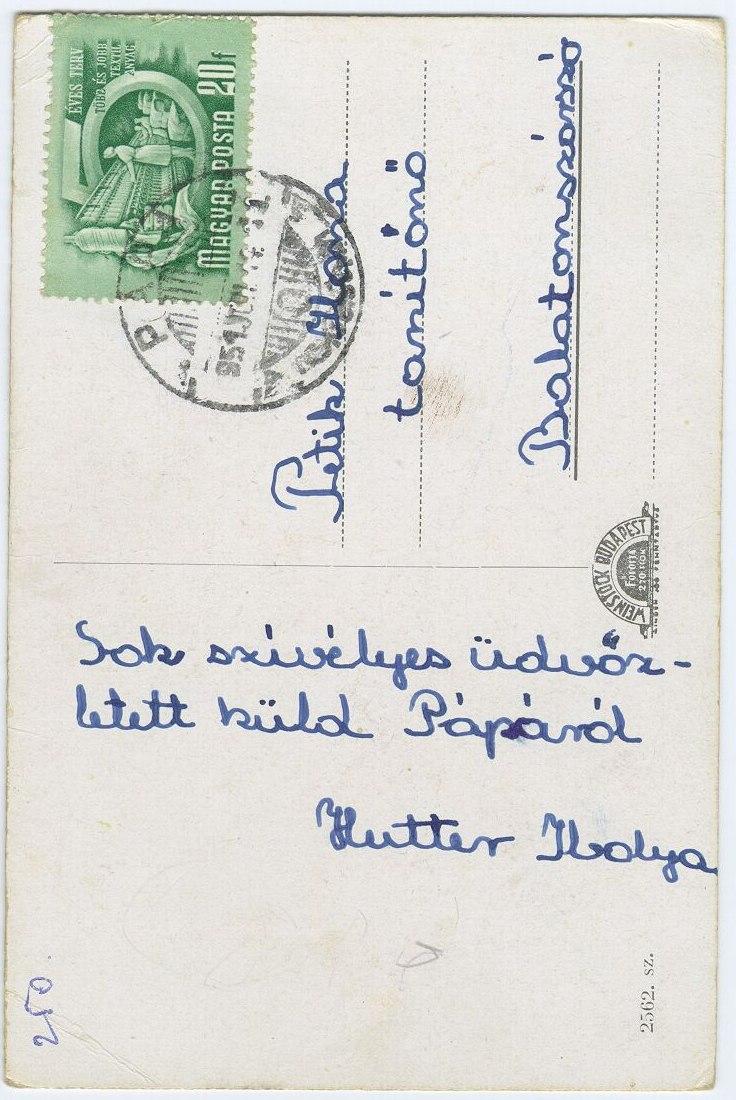 5 ÉVES TERV
TÖBB ÉS JOBB
TEXTIL
ANYAG
20f
MAGYAR POSTA
PÁPA
951 JUN
Petik Ilona
tanítónő
Balatonszárszó
WEINSTOCK BUDAPEST
Sok szívélyes üdvöz-
letett küld Pápáról
Hutter Ibolya
250.
2562. sz.